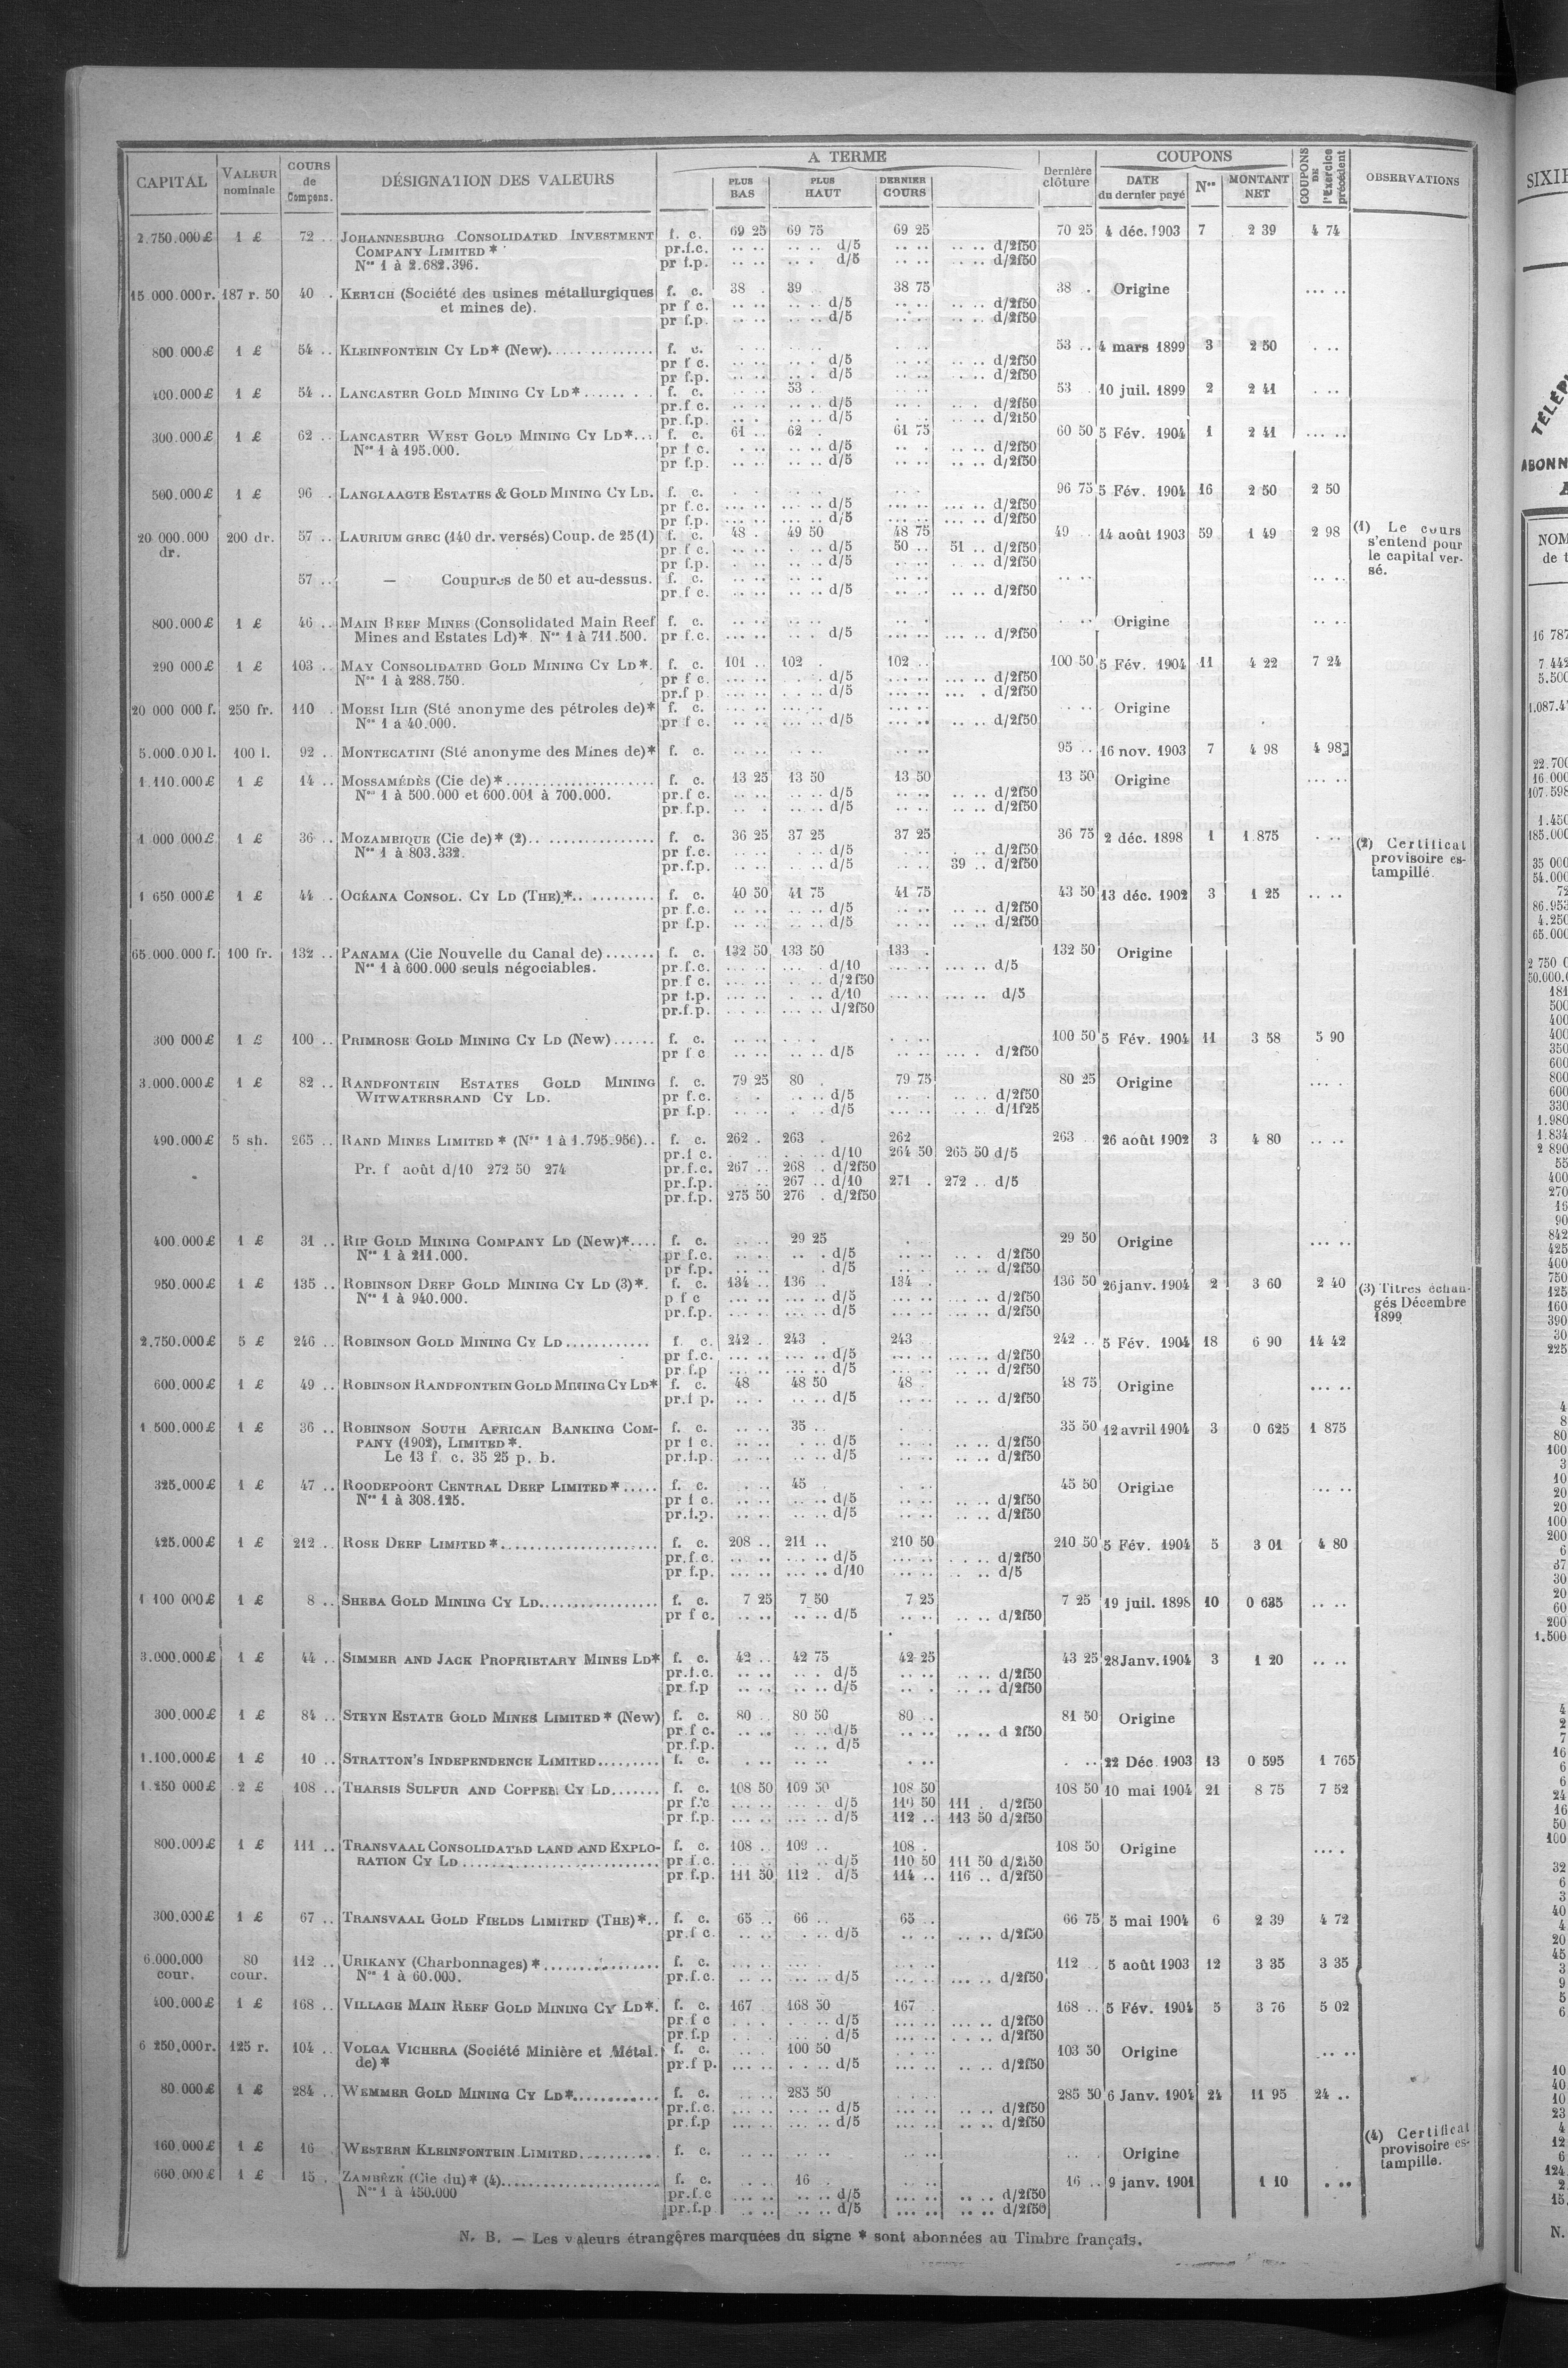 CAPITAL | VALEUR nominale | COURS de Compens. | DÉSIGNATION DES VALEURS | A TERME | Dernière clôture | COUPONS | COUPONS DE l'Exercice précédent | OBSERVATIONS
PLUS BAS | PLUS HAUT | DERNIER COURS | DATE du dernier payé | Nos | MONTANT NET
2.750.000 £ 1 £ 72 .. JOHANNESBURG CONSOLIDATED INVESTMENT f. c. 69 25 69 75 69 25 70 25 4 déc. 1903 7 2 39 4 74
COMPANY LIMITED * pr.f.c. .. .. .. .. d/5 .. .. .. .. d/2f50
Nos 1 à 2.682.396. pr f.p. .. .. .. . d/5 .. .. .. .. d/2f50
15 000.000 r. 187 r. 50 40 . KERTCH (Société des usines métallurgiques f. c. 38 . 39 38 75 38 . Origine ... ..
et mines de). pr f c. .. .. .. .. d/5 .. .. .. .. d/2f50
pr f.p. .. .. .. .. d/5 .. .. .. .. d/2f50
800 000 £ 1 £ 54 .. KLEINFONTEIN CY LD* (New).............. f. c. 53 .. 4 mars 1899 3 2 50 . ..
pr f c. .. .. .. . d/5 .. .. .. .. d/2f50
pr f.p. .. .. .. . d/5 .. .. .. .. d/2f50
400.000 £ 1 £ 54 .. LANCASTER GOLD MINING CY LD*....... f. c. 53 . 53 . 10 juil. 1899 2 2 41 . ..
pr.f c. .. .. .. .. d/5 .. .. .. . d/2f50
pr.f.p. .. .. .. .. d/5 .. . .. .. d/2f50
300.000 £ 1 £ 62 .. LANCASTER WEST GOLD MINING CY LD*... f. c. 61 .. 62 . 61 75 60 50 5 Fév. 1904 1 2 41 ... ..
Nos 1 à 195.000. pr f c. . .. .. .. d/5 .. . .. .. d/2f50
pr f.p. .. .. .. .. d/5 .. .. .. .. d/2f50
500.000 £ 1 £ 96 . LANGLAAGTE ESTATES & GOLD MINING CY LD. f. c. 96 75 5 Fév. 1904 16 2 50 2 50
pr f.c. ... .. ... .. d/5 ... .. ... .. d/2f50
pr f.p. ... .. ... .. d/5 ... .. ... .. d/2f50
20 000.000 dr. 200 dr. 57 .. LAURIUM GREC (140 dr. versés) Coup. de 25 (1) f. c. 48 . 49 50 48 75 49 .. 14 août 1903 59 1 49 2 98 (1) Le cours
pr f c. .. .. . .. d/5 50 .. 51 .. d/2f50 s'entend pour
pr f.p. .. .. .. .. d/5 .. .. .. .. d/2f50 le capital ver-
57 .. — Coupures de 50 et au-dessus. f. c. .. .. .. .. .. .. .. .. .. .. sé.
pr f c. .. .. .. .. d/5 .. .. .. .. d/2f50
800.000 £ 1 £ 46 .. MAIN REEF MINES (Consolidated Main Reef f. c. .. .. .. .. .. .. .. .. Origine .. .
Mines and Estates Ld)*. Nos 1 à 711.500. pr f.c. ... .. .. .. d/5 ... .. ... .. d/2f50
290 000 £ 1 £ 103 .. MAY CONSOLIDATED GOLD MINING CY LD*. f. c. 101 .. 102 . 102 .. 100 50 5 Fév. 1904 11 4 22 7 24
Nos 1 à 288.750. pr f c. ... .. .. .. d/5 ... .. ... .. d/2f50
pr.f p. ... .. . .. d/5 ... .. ... . d/2f50
20 000 000 f. 250 fr. 110 . MOESI ILIR (Sté anonyme des pétroles de)* f. c. ... .. ... .. ... .. . .. Origine
Nos 1 à 40.000. pr f c. .. .. ... .. d/5 ... .. .. .. d/2f50
5.000.000 l. 100 l. 92 .. MONTECATINI (Sté anonyme des Mines de)* f. c. .. .. .. .. .. .. 95 .. 16 nov. 1903 7 4 98 4 98
1.110.000 £ 1 £ 14 .. MOSSAMÉDÈS (Cie de)*..................... f. c. 13 25 13 50 13 50 13 50 Origine ... ..
Nos 1 à 500.000 et 600.001 à 700.000. pr.f c. .. .. .. .. d/5 .. .. .. .. d/2f50
pr.f.p. .. . .. .. d/5 .. .. .. .. d/2f50
1 000 000 £ 1 £ 36 .. MOZAMBIQUE (Cie de)* (2).. .............. f. c. 36 25 37 25 37 25 36 75 2 déc. 1898 1 1 875 . .. (2) Certificat
Nos 1 à 803.332. pr f.c. .. .. . .. d/5 .. .. . .. d/2f50 provisoire es-
pr.f.p. .. .. .. .. d/5 .. . 39 .. d/2f50 tampillé.
1 650 000 £ 1 £ 44 .. OCÉANA CONSOL. CY LD (THE)*.. .......... f. c. 40 50 41 75 41 75 43 50 13 déc. 1902 3 1 25 .. ..
pr f.c. .. .. .. .. d/5 .. .. .. .. d/2f50
pr f.p. .. .. .. .. d/5 .. .. .. .. d/2f50
65.000.000 f. 100 fr. 132 .. PANAMA (Cie Nouvelle du Canal de)....... f. c. 132 50 133 50 133 . 132 50 Origine
Nos 1 à 600.000 seuls négociables. pr.f.c. ... .. ... . d/10 ... .. ... .. d/5
pr f c. ... .. . .. d/2f50
pr f.p. ... .. . .. d/10 ... .. ... .. d/5
pr.f.p. . .. .. ... .. d/2f50
300 000 £ 1 £ 100 .. PRIMROSE GOLD MINING CY LD (New)...... f. c. .. .. .. .. . .. . 100 50 5 Fév. 1904 11 3 58 5 90
pr f c. .. .. .. .. d/5 .. .. ... . d/2f50
3.000.000 £ 1 £ 82 .. RANDFONTEIN ESTATES GOLD MINING f. c. 79 25 80 . 79 75 80 25 Origine ... .
WITWATERSRAND CY LD. pr f.c. . . .. .. d/5 .. . .. .. d/2f50
pr f.p. .. . . .. d/5 ... .. .. .. d/1f25
490.000 £ 5 sh. 265 .. RAND MINES LIMITED * (Nos 1 à 1.795.956).. f. c. 262 . 263 . 262 263 . 26 août 1902 3 4 80 .. ..
pr.f c. . .. . .. d/10 264 50 265 50 d/5
Pr. f août d/10 272 50 274 pr.f.c. 267 .. 268 .. d/2f50
pr.f.p. .. .. 267 .. d/10 271 . 272 .. d/5
pr.f.p. 275 50 276 . d/2f50
400.000 £ 1 £ 31 .. RIP GOLD MINING COMPANY LD (New)*.... f. c. .. .. 29 25 . 29 50 Origine ... ..
Nos 1 à 211.000. pr f.c. .. .. .. . d/5 .. .. .. . d/2f50
pr f.p. .. .. . d/5 .. .. .. .. d/2f50
950.000 £ 1 £ 135 .. ROBINSON DEEP GOLD MINING CY LD (3)*. f. c. 134 .. 136 . 134 . 136 50 26 janv. 1904 2 3 60 2 40 (3) Titres échan-
Nos 1 à 940.000. p f c ... .. ... .. d/5 ... .. ... .. d/2f50 gés Décembre
pr.f.p. ... .. ... .. d/5 ... .. ... .. d/2f50 1899
2,750.000 £ 5 £ 246 .. ROBINSON GOLD MINING CY LD............ f. c. 242 . 243 . 243 242 .. 5 Fév. 1904 18 6 90 14 42
pr f.c. ... .. ... .. d/5 ... .. ... .. d/2f50
pr f.p ... .. ... .. d/5 ... .. .. .. d/2f50
600.000 £ 1 £ 49 .. ROBINSON RANDFONTEIN GOLD MINING CY LD* f. c. 48 48 50 48 . 48 75 Origine ... ..
pr.f p. .. . .. .. d/5 .. .. .. .. d/2f50
1 500.000 £ 1 £ 36 .. ROBINSON SOUTH AFRICAN BANKING COM- f. c. .. .. 35 .. 35 50 12 avril 1904 3 0 625 1 875
PANY (1902), LIMITED*. pr f c. .. .. . .. d/5 .. .. .. .. d/2f50
Le 13 f. c. 35 25 p. b. pr.f.p. .. .. .. .. d/5 .. .. .. .. d/2f50
325.000 £ 1 £ 47 .. ROODEPOORT CENTRAL DEEP LIMITED*..... f. c. . .. 45 . .. 45 50 Origine .. ..
Nos 1 à 308.125. pr f c. .. .. .. .. d/5 .. .. .. .. d/2f50
pr.f.p. .. .. .. .. d/5 .. .. .. .. d/2f50
425.000 £ 1 £ 212 .. ROSE DEEP LIMITED*...................... f. c. 208 .. 211 .. 210 50 210 50 5 Fév. 1904 5 3 01 4 80
pr.f.c. .. .. ... .. d/5 ... .. . .. d/2f50
pr f.p. ... .. ... .. d/10 ... .. .. .. d/5
1 100 000 £ 1 £ 8 .. SHEBA GOLD MINING CY LD................. f. c. 7 25 7 50 7 25 7 25 19 juil. 1898 10 0 635 .. ..
pr f c. .. .. .. .. d/5 .. .. .. .. d/2f50
3.000.000 £ 1 £ 44 .. SIMMER AND JACK PROPRIETARY MINES LD* f. c. 42 .. 42 75 42 25 43 25 28 Janv. 1904 3 1 20 .. ..
pr.f.c. .. .. .. . d/5 .. .. .. .. d/2f50
pr f.p .. .. .. .. d/5 .. . .. .. d/2f50
300.000 £ 1 £ 84 .. STEYN ESTATE GOLD MINES LIMITED* (New) f. c. 80 .. 80 50 80 .. 81 50 Origine
pr.f c. .. .. .. .. d/5 .. .. .. .. d 2f50
pr.f.p. .. .. d/5
1.100,000 £ 1 £ 10 .. STRATTON'S INDEPENDENCE LIMITED........ f. c. . .. .. .. . .. . .. 22 Déc 1903 13 0 595 1 765
1.250 000 £ 2 £ 108 .. THARSIS SULFUR AND COPPER CY LD....... f. c. 108 50 109 50 108 50 108 50 10 mai 1904 21 8 75 7 52
pr f.c ... .. ... . d/5 110 50 111 . d/2f50
pr f.p. ... .. ... .. d/5 112 .. 113 50 d/2f50
800.000 £ 1 £ 111 .. TRANSVAAL CONSOLIDATED LAND AND EXPLO- f. c. 108 . 109 .. 108 . 108 50 Origine ... .
RATION CY LD........................... pr f.c. ... . . .. d/5 110 50 111 50 d/2f50
pr f.p. 111 50 112 . d/5 114 .. 116 .. d/2f50
300.000 £ 1 £ 67 .. TRANSVAAL GOLD FIELDS LIMITED (THE)*.. f. c. 65 .. 66 .. 65 .. 66 75 5 mai 1904 6 2 39 4 72
pr.f c. .. .. . .. d/5 .. .. .. .. d/2f50
6.000.000 cour. 80 cour. 112 .. URIKANY (Charbonnages)*................ f. c. ... .. ... .. ... .. 112 .. 5 août 1903 12 3 35 3 35
Nos 1 à 60.000. pr.f.c. ... .. ... .. d/5 ... .. ... .. d/2f50
400.000 £ 1 £ 168 .. VILLAGE MAIN REEF GOLD MINING CY LD*. f. c. 167 168 50 167 . 168 .. 5 Fév. 1904 5 3 76 5 02
pr.f c . . . . .. d/5 ... .. ... .. d/2f50
pr.f.p . .. . . d/5 ... .. . .. d/2f50
6 250,000 r. 125 r. 104 .. VOLGA VICHERA (Société Minière et Métal. f. c. . .. 100 50 . .. 103 50 Origine .. ..
de)* pr.f p. ... .. . .. d/5 ... .. .. .. d/2f50
80.000 £ 1 £ 284 .. WEMMER GOLD MINING CY LD*............ f. c. . .. 285 50 . .. 285 50 6 Janv. 1904 24 11 95 24 ..
pr.f.c. ... .. ... .. d/5 ... .. .. .. d/2f50
pr.f.p ... .. ... .. d/5 ... .. .. .. d/2f50
160.000 £ 1 £ 16 . WESTERN KLEINFONTEIN LIMITED........... f. c. .. .. .. .. .. .. .. . Origine (4) Certificat
provisoire es-
tampille.
600.000 £ 1 £ 15 . ZAMBÈZE (Cie du)* (4)...................... f. c. . .. 16 . .. .. 16 .. 9 janv. 1901 1 10 . ..
Nos 1 à 450.000 pr.f.c ... .. .. .. d/5 ... .. .. .. d/2f50
pr.f.p .. .. .. .. d/5 ... .. .. .. d/2f50
N. B. — Les valeurs étrangères marquées du signe * sont abonnées au Timbre français.